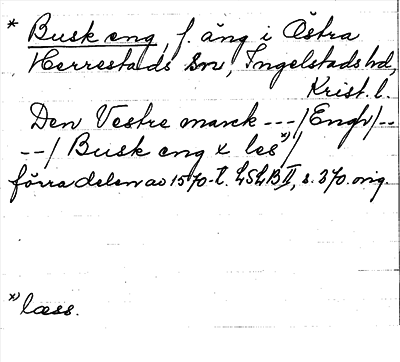 * Busk eng, f. äng i Östra
Herrestads sn, Ingelstads hd,
Krist. l.
Den Vestre marck ---/Engh/--
--/ Busk eng x les ˣ⁾/
förra delen av 1570-t. LSLB II, s. 370. orig.
ˣ⁾ læss.